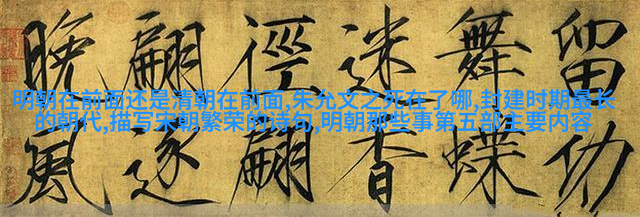 留功
舞蝶
迷香
徑翩
翩逐
晚風
明朝在前面还是清朝在前面,朱允文之死在了哪,封建时期最长
的朝代,描写宋朝繁荣的诗句,明朝那些事第五部主要内容